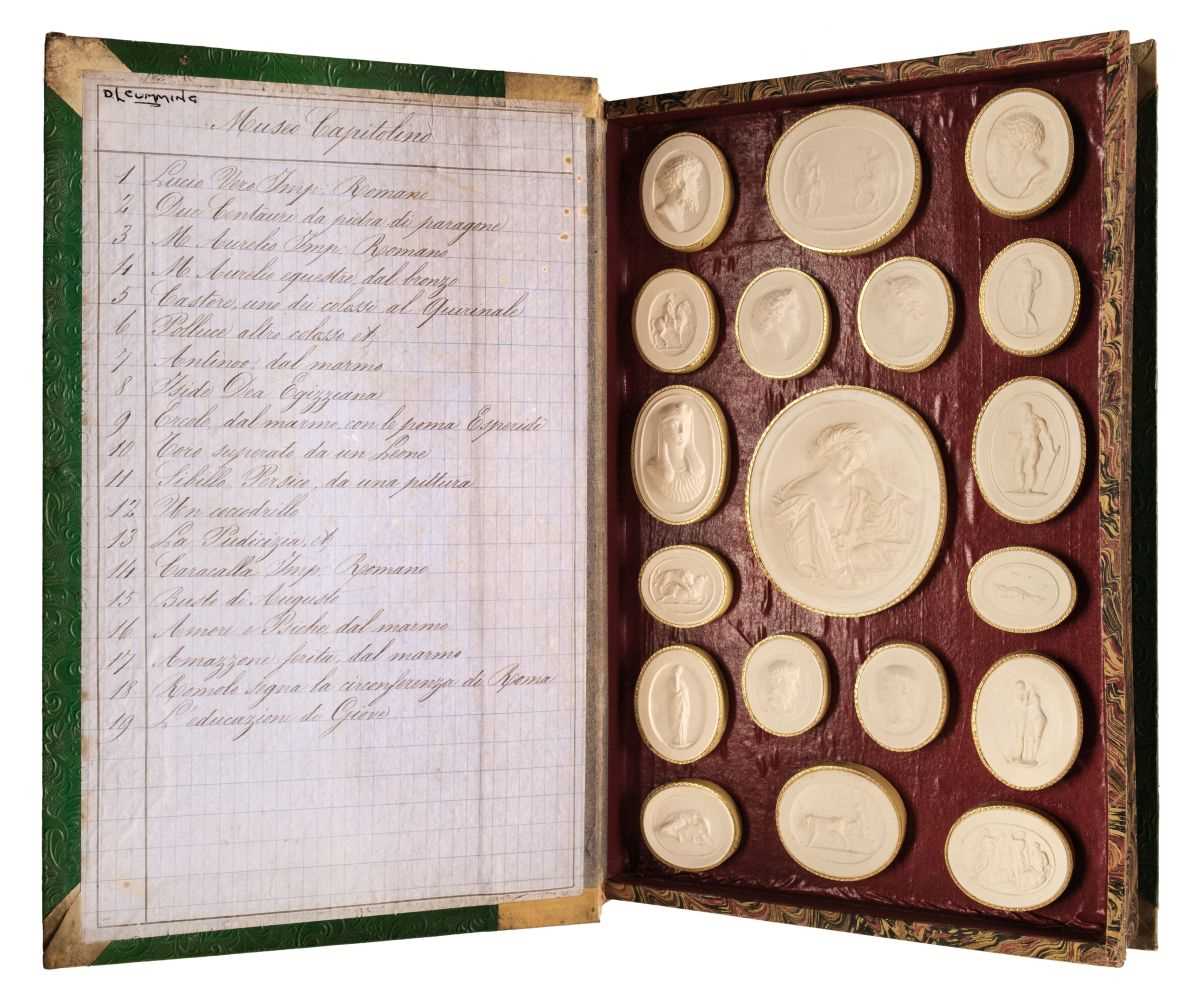 DLCUMMING
Museo Capitolino
1 Lucio Vero Imp. Romano
2 Due Centauri da pietra di paragone
3 M. Aurelio Imp. Romano
4 M. Aurelio equestre, dal bronzo
5 Castore, uno du colossi al Quirinale
6 Polluce altro colosso et,
7 Antinoo, dal marmo
8 Iside Dea Egizziana
9 Ercole, dal marmo, con le poma Esperidi
10 Toro superato da un Leone
11 Sibilla Persica, da una pittura
12 Un coccodrillo
13 La Pudicizia, et,
14 Caracalla Imp. Romano
15 Busto di Augusto
16 Amore e Psiche, dal marmo
17 Amazzone ferita, dal marmo
18 Romolo segna la circonferenza di Roma
19 L'educazion di Giove